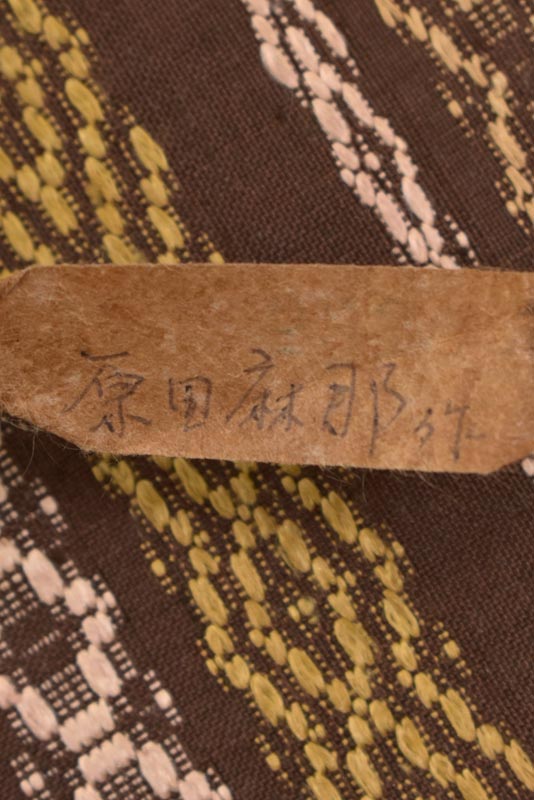 原田麻那作